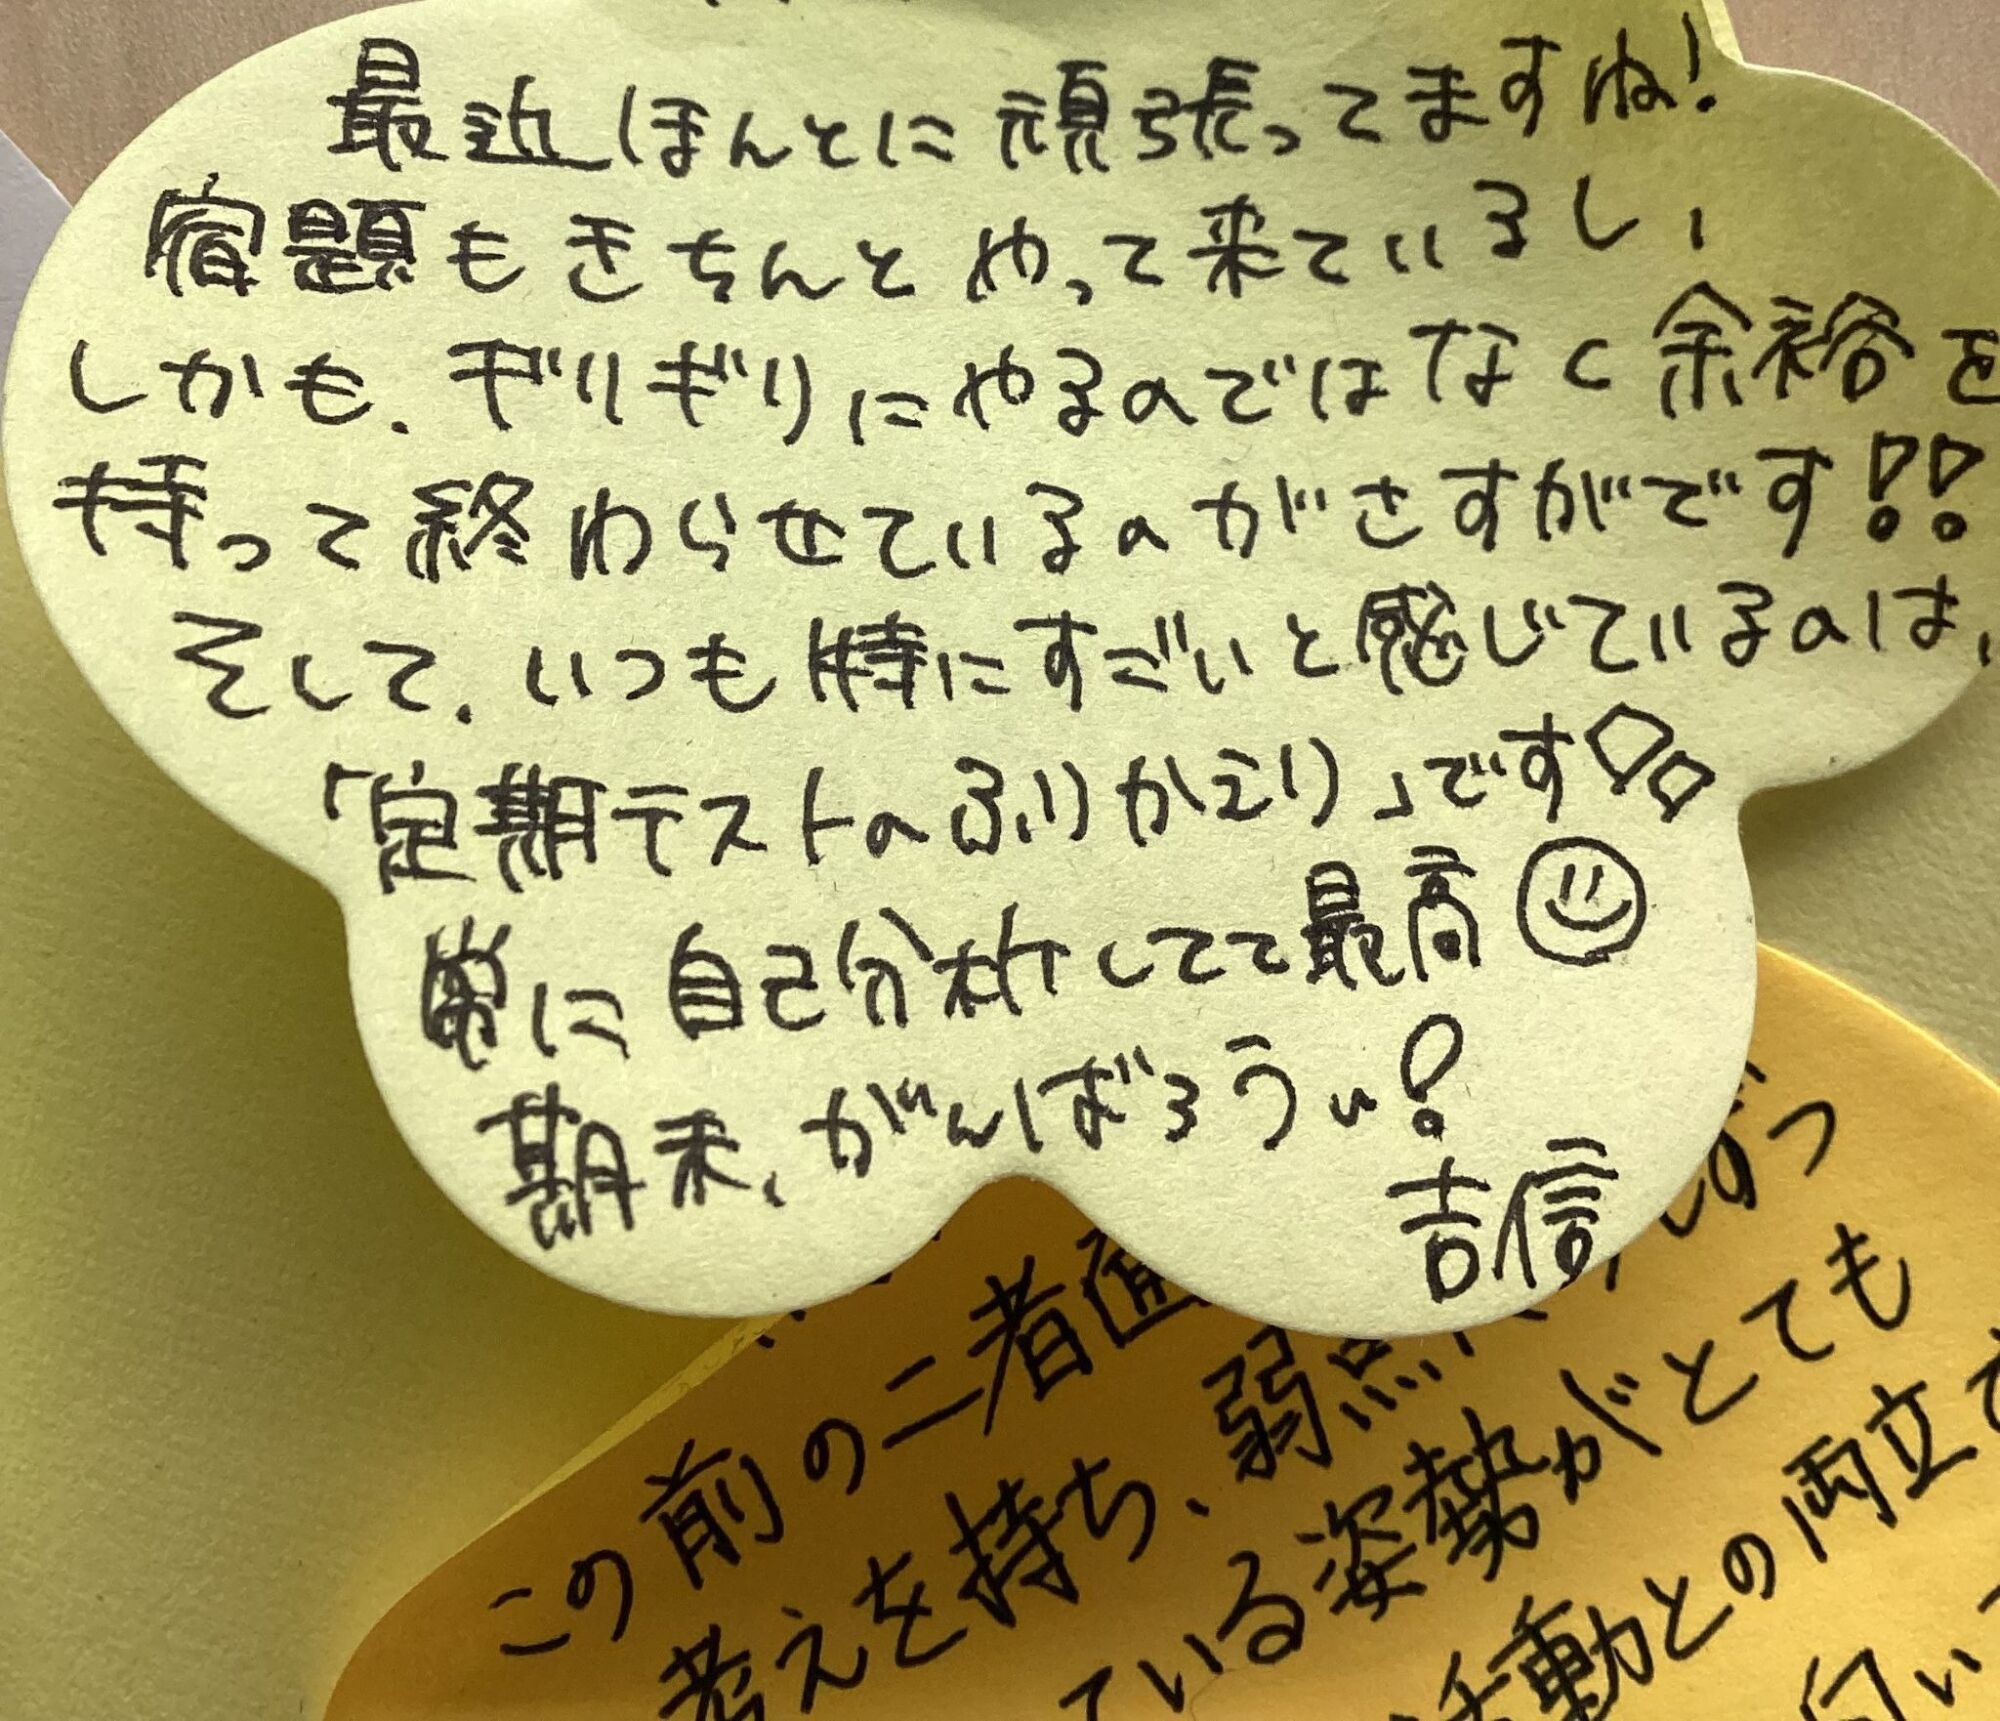 最近ほんとに頑張ってますね!
宿題もきちんとやって来ているし、
しかも、ギリギリにやるのではなく余裕を
持って終わらせているのがさすがです!!
そして、いつも特にすごいと感じているのは、
「定期テストのふりかえり」です
常に自己分析してて最高
期末、がんばろうぃ!
吉信
この前の二者通
考えを持ち、弱点
ている姿勢がとても
活動との両立